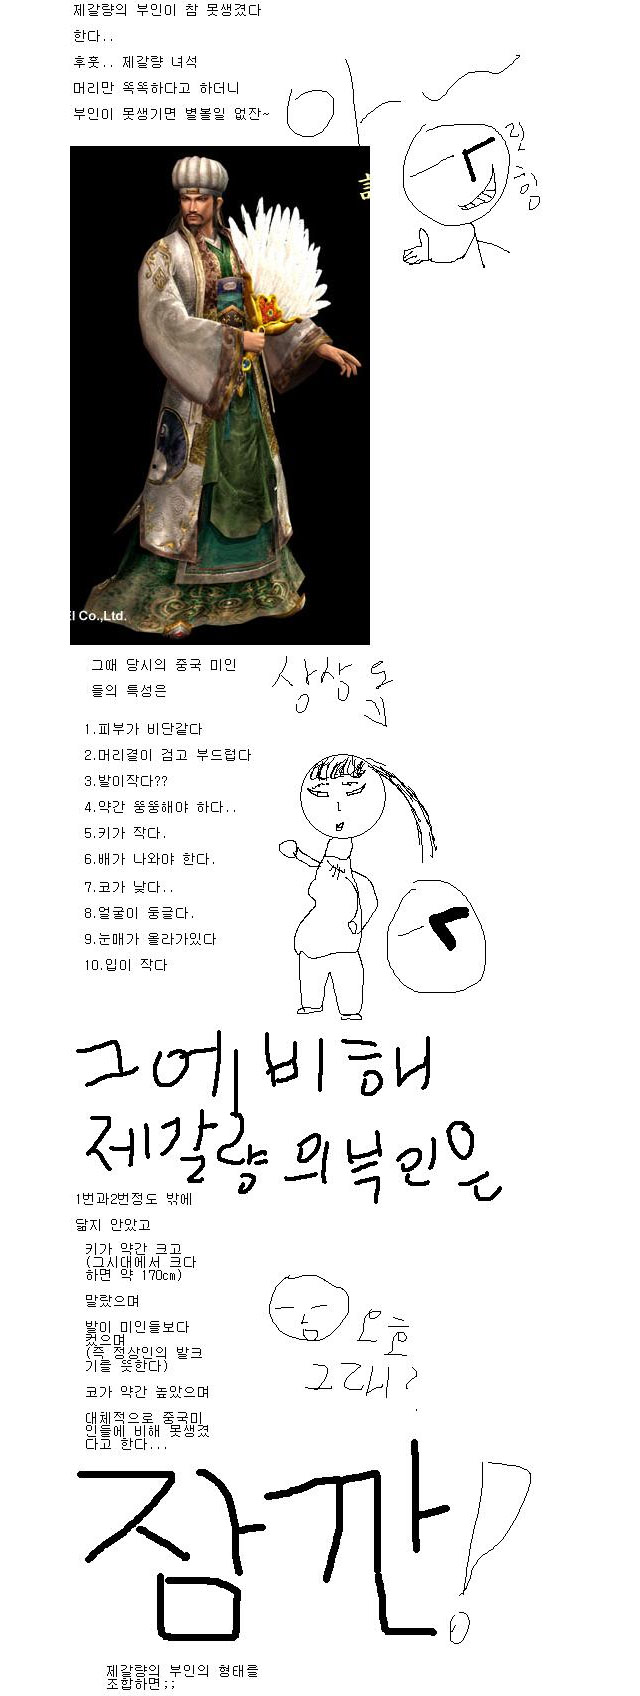 제갈량의 부인이 참 못생겼다
한다..
후훗.. 제갈량 녀석
머리만 똑똑하다고 하더니
부인이 못생기면 별볼일 없잔~
아~
흐힘
EI Co.,Ltd.
그때 당시의 중국 미인
들의 특성은
상상도
1.피부가 비단같다
2.머리결이 검고 부드럽다
3.발이작다??
4.약간 뚱뚱해야 하다..
5.키가 작다.
6.배가 나와야 한다.
7.코가 낮다..
8.얼굴이 둥글다.
9.눈매가 올라가있다
10.입이 작다
그에 비해
제갈량의 부인은
1번과2번정도 밖에
닮지 안았고
키가 약간 크고
(그시대에서 크다
하면 약 170cm)
말랐으며
발이 미인들보다
컸으며
(즉 정상인의 발크
기를 뜻한다)
오호
그래?
코가 약간 높았으며
대체적으로 중국미
인들에 비해 못생겼
다고 한다...
잠깐!
제갈량의 부인의 형태를
조합하면;;